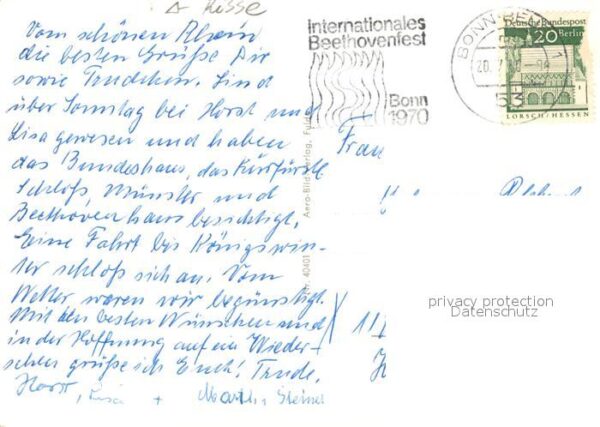 Risse
Vom schönen Rhein
die besten Grüße Dir
sowie Trudchen. Sind
über Sonntag bei Horst und
Lisa gewesen und haben
das Bundeshaus, das Kurfürstl.
Schloß, Münster und
Beethovenhaus besichtigt.
Eine Fahrt bis Königswin-
ter schloß sich an. Vom
Wetter waren wir begünstigt.
Mit den besten Wünschen und
in der Hoffnung auf ein Wieder-
sehen grüße ich Euch! Trude,
Horst, Lisa + Martha
Internationales
Beethovenfest
Bonn
1970
BONN
53
Deutsche Bundespost
20 Berlin
LORSCH/HESSEN
Aero-Bild Verlag, Fulda
40401
Frau
11
privacy protection
Datenschutz